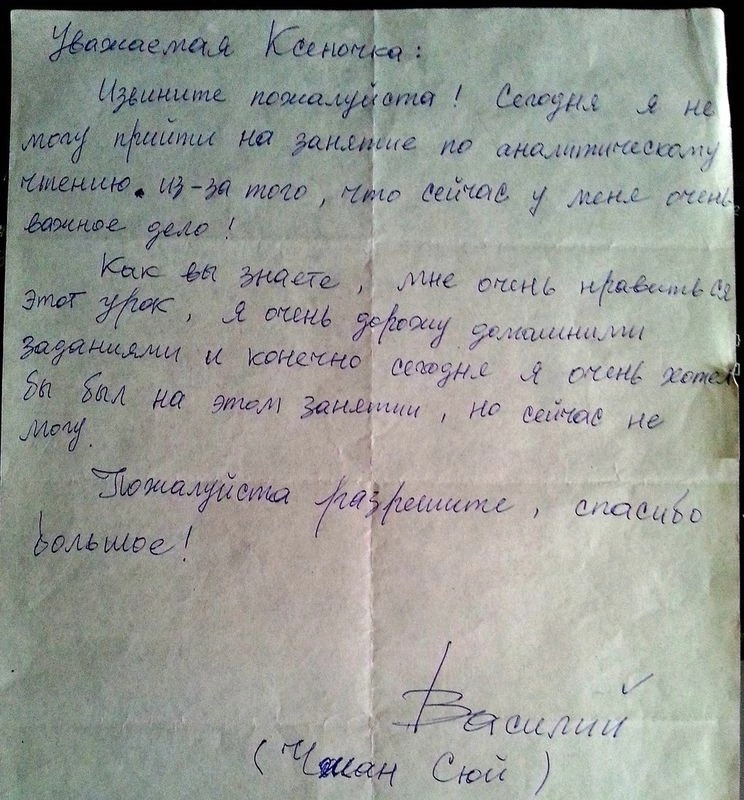 Уважаемая Ксеночка:
Извините пожалуйста! Сегодня я не
могу прийти на занятие по аналитическому
чтению. из-за того, что сейчас у меня очень
важное дело!
Как вы знаете, мне очень нравиться
этот урок, я очень дорожу домашними
заданиями и конечно сегодня я очень хотел
бы был на этом занятии, но сейчас не
могу.
Пожалуйста разрешите, спасибо
большое!
Василий
(Чжан Сюй)